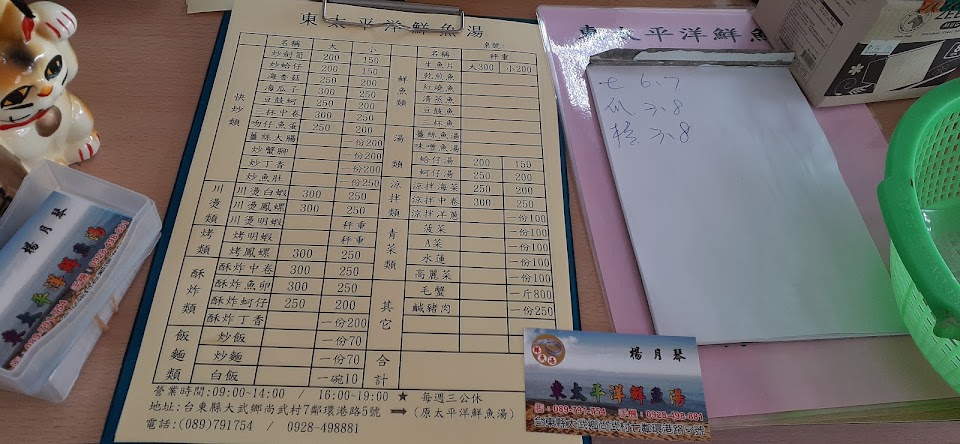 東太平洋鮮魚湯
名稱 大 小
快炒類
炒劍筍 200 150
炒蛤仔 200 150
海香菇 250 200
海瓜子 300 200
豆鼓蚵 250 200
三杯中卷 300 250
吻仔魚蛋 250 200
薑絲大腸 一份200
炒蟹腳 一份200
炒丁香 一份200
炒魚肚 一份250
川燙類
川燙白蝦 300 250
川燙鳳螺 300 250
川燙明蝦 秤重
烤類
烤明蝦 秤重
烤鳳螺 300 250
酥炸類
酥炸中卷 300 250
酥炸魚卵 300 250
酥炸蚵仔 250 200
酥炸丁香 一份200
飯麵類
炒飯 一份70
炒麵 一份70
白飯 一碗10
桌號:
名稱 秤重
鮮魚類
生魚片 大300 小200
乾煎魚
紅燒魚
清蒸魚
豆鼓魚
三杯魚
湯類
薑絲魚湯
味噌魚湯
蛤仔湯 200 150
蚵仔湯 250 200
涼拌類
涼拌海菜 250 200
涼拌中卷 300 250
涼拌洋蔥 一份100
青菜類
菠菜 一份100
A菜 一份100
水蓮 一份100
高麗菜 一份100
其它
毛蟹 一斤800
鹹豬肉 一份250
合計
營業時間:09:00~14:00 / 16:00~19:00 ★ 每週三公休
地址:台東縣大武鄉尚武村7鄰環港路5號 ➞(原太平洋鮮魚湯)
電話:(089)791754 / 0928-498881
東太平洋鮮魚
七 6、7
楊月琴
東太平洋鮮魚湯
089-791754 0928-498-881
台東縣大武鄉尚武村七鄰環港路5號
楊月琴
東太平洋鮮魚湯
0928-498-881